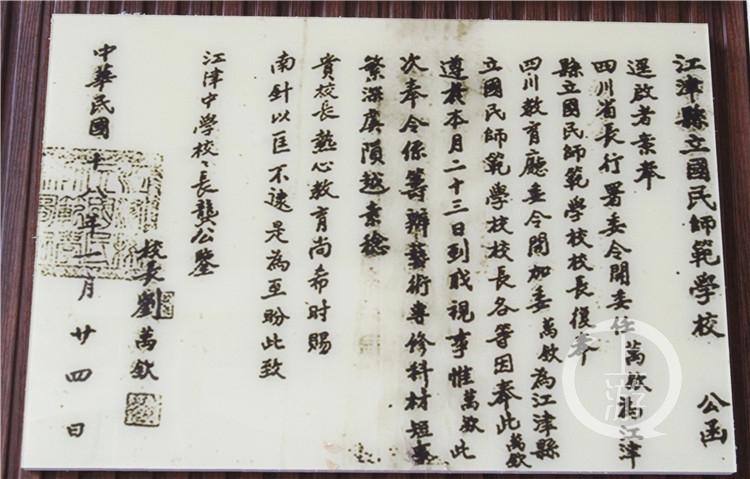 江津縣立國民師範學校 公函
逕啟者案奉
四川省長行署委令開委任萬欽為江津
縣立國民師範學校校長復奉
四川教育廳委令開加委萬欽為江津縣
立國民師範學校校長各等因奉此萬欽
遵於本月二十三日到職視事惟萬欽此
次奉令係籌辦藝術專修科材短事
繁深虞隕越素稔
貴校長熱心教育尚希時賜
南針以匡不逮是為至盼此致
江津中學校々長龔公鑒
校長劉萬欽
中華民國十八年一月廿四日